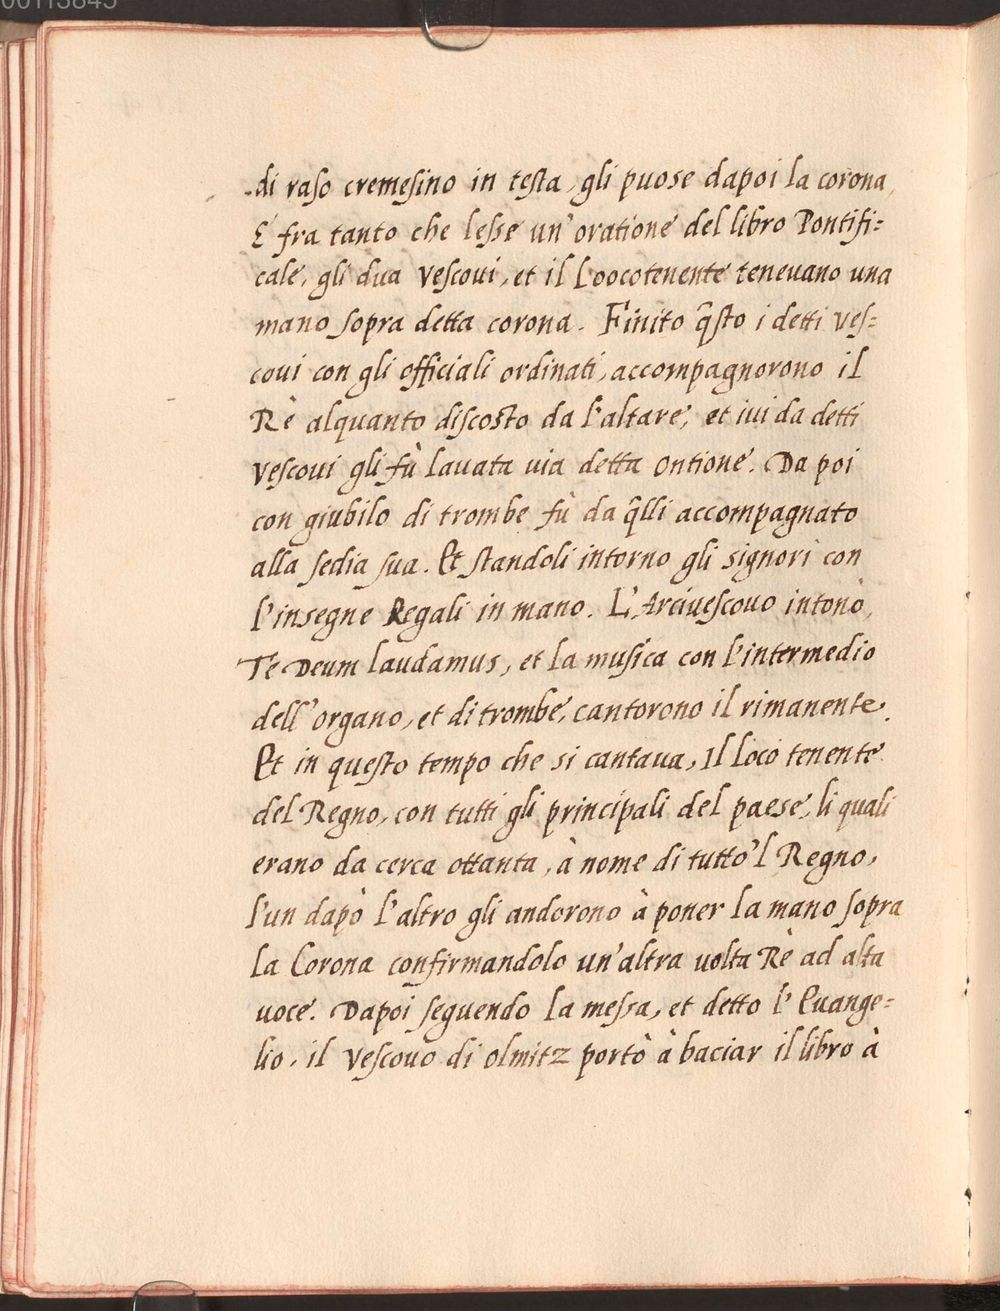 00113845
di raso cremesino in testa, gli puose dapoi la corona,
E fra tanto che lesse un'oratione del libro Pontifi=
cale, gli dua vescoui, et il Loocotenente teneuano una
mano sopra detta corona. Finito q̃sto i detti ves=
coui con gli officiali ordinati, accompagnorono il
Rè alquanto discosto da l'altare, et iui da detti
vescoui gli fù lauata uia detta ontione. Da poi
con giubilo di trombe fù da q̃lli accompagnato
alla sedia sua. Et standoli intorno gli signori con
l'insegne Regali in mano. L'Arciuescouo intonò,
Te Deum laudamus, et la musica con l'intermedio
dell'organo, et di trombe, cantorono il rimanente.
Et in questo tempo che si cantaua, Il Loco tenente
del Regno, con tutti gli principali del paese, li quali
erano da cerca ottanta, à nome di tutto'l Regno,
l'un dapò l'altro gli andorono à poner la mano sopra
la Corona confirmandolo un'altra uolta Rè ad alta
uoce. Dapoi seguendo la messa, et detto l'Euange=
lio, il vescouo di olmitz portò à baciar il libro à